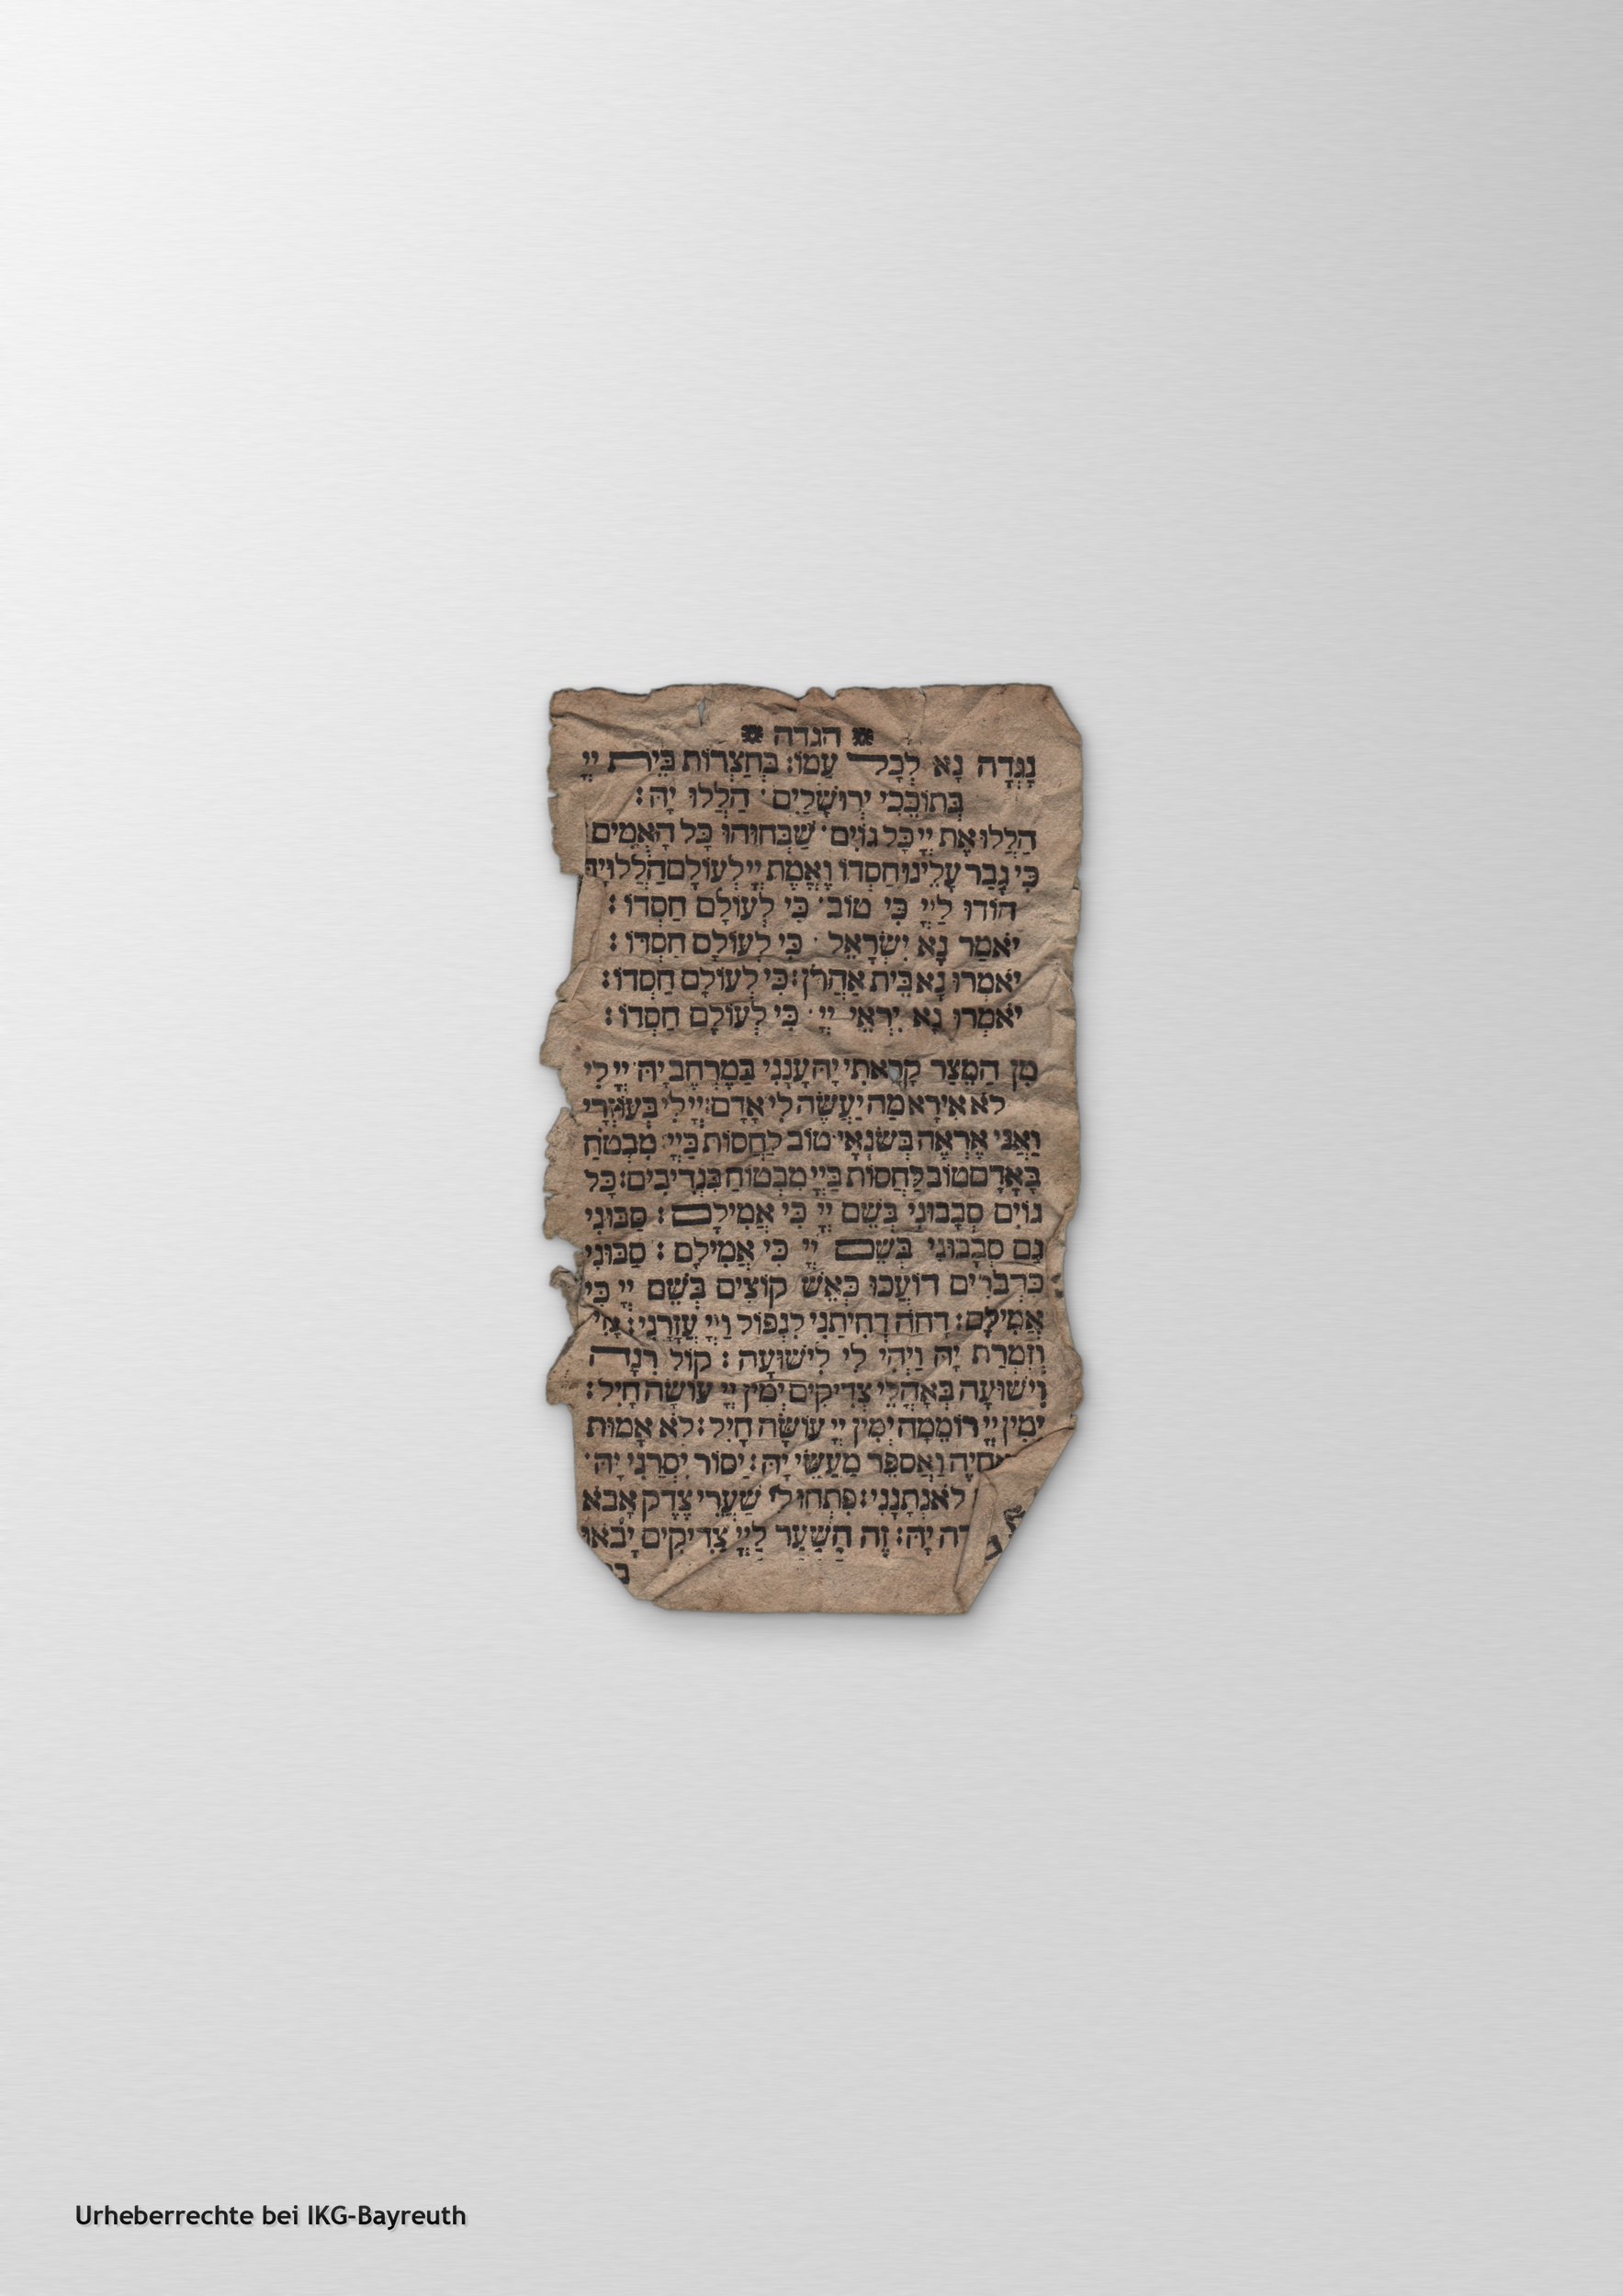 הגדה
נֶגְדָה נָא לְכָל עַמוֹ: בְּחַצְרוֹת בֵּית יְיָ
בְּתוֹכֵכִי יְרוּשָׁלָיִם · הַלְלוּ יָהּ:
הַלְלוּ אֶת יְיָ כָּל גוֹיִם · שַׁבְּחוּהוּ כָּל הָאֻמִים
כִּי גָבַר עָלֵינוּ חַסְדוֹ וֶאֱמֶת יְיָ לְעוֹלָם הַלְלוּיָהּ
הוֹדוּ לַיְיָ כִּי טוֹב · כִּי לְעוֹלָם חַסְדוֹ:
יֹאמַר נָא יִשְׂרָאֵל · כִּי לְעוֹלָם חַסְדוֹ:
יֹאמְרוּ נָא בֵּית אַהֲרֹן: כִּי לְעוֹלָם חַסְדוֹ:
יֹאמְרוּ נָא יִרְאֵי יְיָ · כִּי לְעוֹלָם חַסְדוֹ:
מִן הַמֵּצַר קָרָאתִי יָהּ עָנָנִי בַמֶּרְחָב יָהּ · יְיָ לִי
לֹא אִירָא מַה יַּעֲשֶׂה לִי אָדָם: יְיָ לִי בְּעוֹזְרָי
וַאֲנִי אֶרְאֶה בְּשׂנְאָי · טוֹב לַחֲסוֹת בַּיְיָ מִבְּטֹחַ
בָּאָדָם טוֹב לַחֲסוֹת בַּיְיָ מִבְּטוֹחַ בִּנְדִיבִים: כָּל
גוֹיִם סְבָבוּנִי בְּשֵׁם יְיָ כִּי אֲמִילָם: סַבּוּנִי
גַם סְבָבוּנִי בְּשֵׁם יְיָ כִּי אֲמִילָם: סַבּוּנִי
כִדְבֹרִים דוֹעֲכוּ כְּאֵשׁ קוֹצִים בְּשֵׁם יְיָ כִּי
אֲמִילָם: דַחֹה דְחִיתַנִי לִנְפּוֹל וַיְיָ עֲזָרָנִי: עָזִי
וְזִמְרַת יָהּ וַיְהִי לִי לִישׁוּעָה: קוֹל רִנָה
וִישׁוּעָה בְּאָהֳלֵי צַדִיקִים יְמִין יְיָ עוֹשָׂה חָיִל:
יְמִין יְיָ רוֹמֵמָה יְמִין יְיָ עוֹשָׂה חָיִל: לֹא אָמוּת
אֶחְיֶה וַאֲסַפֵּר מַעֲשֵׂי יָהּ: יַסוֹר יִסְרַנִי יָהּ ·
לֹא נְתָנָנִי: פִּתְחוּ לִי שַׁעֲרֵי צֶדֶק אָבֹא
דה יָהּ: זֶה הַשַּׁעַר לַיְיָ צַדִיקִים יָבֹאוּ
Urheberrechte bei IKG-Bayreuth